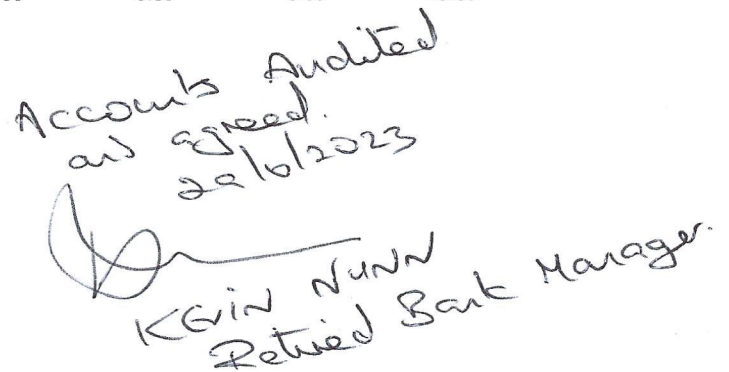 Accounts Audited
and agreed.
29/6/2023
KEVIN NUNN
Retired Bank Manager.